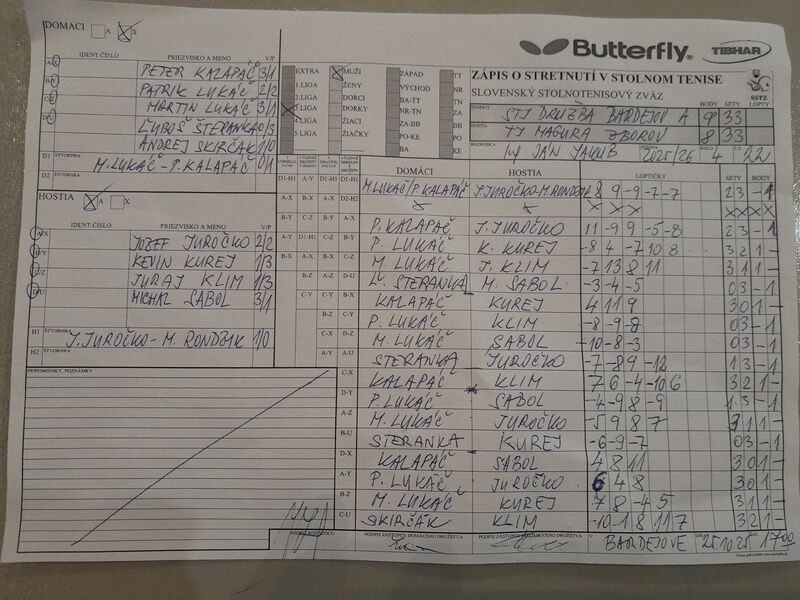 DOMACI A X
Butterfly TIBHAR
IDENT.ČÍSLO PRIEZVISKO A MENO V/P
PETER KALAPÁČ 3/1
PATRIK LUKÁČ 2/2
MARTIN LUKÁČ 3/1
ĽUBOŠ ŠTERANKA 0/3
ANDREJ SKIRČÁK 1/0
D1 ŠTVORHRA M. LUKÁČ - P. KALAPÁČ 0/1
D2
EXTRA MUŽI ZÁPAD TT
1.LIGA ŽENY VÝCHOD NR
2.LIGA DORCI BA-TT TN
3.LIGA DORKY TN-NR
4.LIGA ŽIACI ZA-BB
5.LIGA ŽIAČKY PO-KE
BA KE
ZÁPIS O STRETNUTÍ V STOLNOM TENISE
SLOVENSKÝ STOLNOTENISOVÝ ZVÄZ
SSTZ
BODY SETY LOPTY
DOMÁCI STJ DRUŽBA BARDEJOV A 9 33
HOSTIA TJ MAGURA ZBOROV 8 33
ROZHODCA JÁN JAKUB 2025/26 KOLO 4 22
HOSTIA A X
IDENT.ČÍSLO PRIEZVISKO A MENO V/P
JOZEF JUROČKO 2/2
KEVIN KUREJ 1/3
JURAJ KLIM 1/3
MICHAL SABOL 3/1
H1 ŠTVORHRA J. JUROČKO - M. RONDZIK 1/0
H2 ŠTVORHRA
PRIPOMIENKY, POZNÁMKY
DOMÁCI HOSTIA LOPTIČKY SETY BODY
D1-H1 A-Y D1-H1 D1-H1 M. LUKÁČ/P. KALAPÁČ J. JUROČKO-M. RONDZIK 8 9 -9 -7 -7 2 3 - 1
A-X B-X A-X D2-H2 X X X X X X X
B-Y C-Z B-Y A-X P. KALAPÁČ J. JUROČKO 11 -9 9 -5 -8 2 3 - 1
A-Y D1-H1 C-Z B-Y P. LUKÁČ K. KUREJ -8 4 -7 10 8 3 2 1 -
B-X A-X B-X C-Z M. LUKÁČ J. KLIM -7 13 8 11 3 1 1 -
B-Z A-Z D-U Ľ. ŠTERANKA M. SABOL -3 -4 -5 0 3 - 1
C-Y B-X KALAPÁČ KUREJ 4 11 9 3 0 1 -
B-Z C-Y P. LUKÁČ KLIM -8 -9 -8 0 3 - 1
C-X D-Z M. LUKÁČ SABOL -10 -8 -3 0 3 - 1
A-Y A-U ŠTERANKA JUROČKO -7 -8 9 -12 1 3 - 1
C-X KALAPÁČ KLIM 7 6 -4 -10 6 3 2 1 -
D-Y P. LUKÁČ SABOL -4 -9 8 -9 1 3 - 1
A-Z M. LUKÁČ JUROČKO -5 9 8 7 3 1 1 -
B-U ŠTERANKA KUREJ -6 -9 -7 0 3 - 1
D-X KALAPÁČ SABOL 4 8 11 3 0 1 -
A-Y P. LUKÁČ JUROČKO 6 4 8 3 0 1 -
B-Z M. LUKÁČ KUREJ 7 8 -4 5 3 1 1 -
C-U SKIRČÁK KLIM -10 -1 8 11 7 3 2 1 -
PODPIS ROZHODCU PODPIS ZÁSTUPCU DOMÁCEHO DRUŽSTVA V BARDEJOVE 25.10.25 17:00